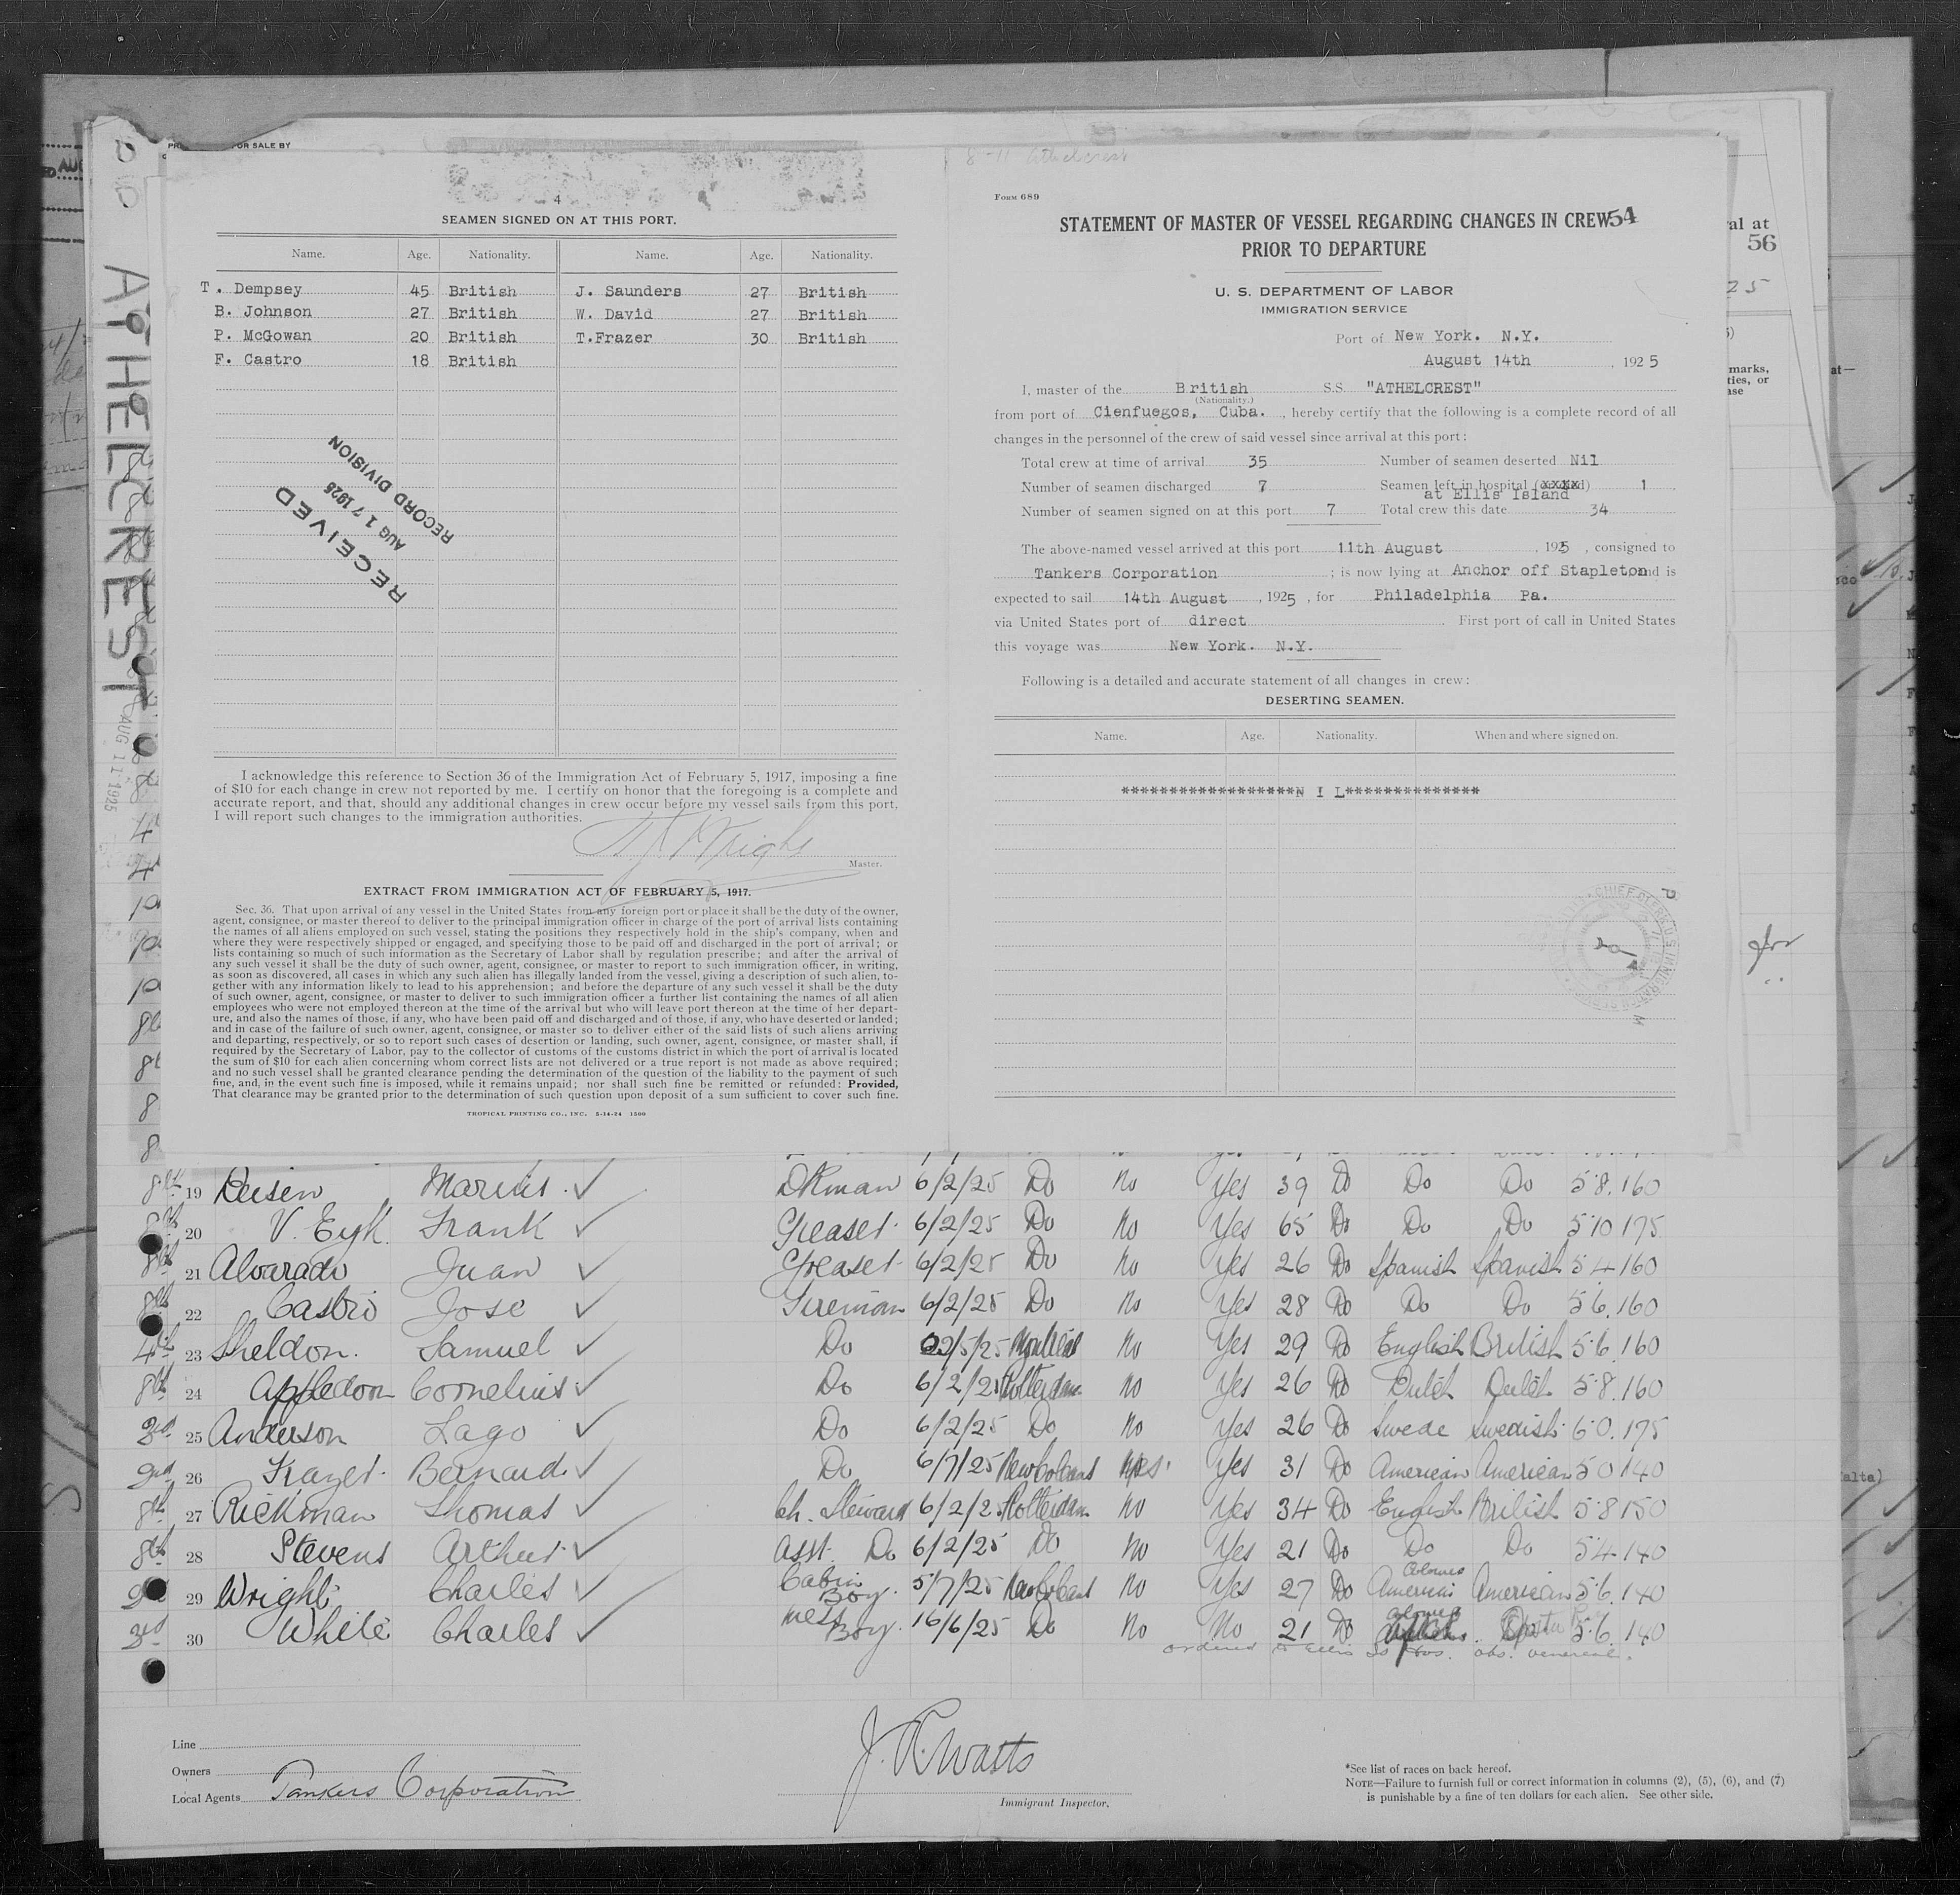 FOR SALE BY
4
SEAMEN SIGNED ON AT THIS PORT.
Name. Age. Nationality. Name. Age. Nationality.
T. Dempsey 45 British J. Saunders 27 British
B. Johnson 27 British W. David 27 British
P. McGowan 20 British T.Frazer 30 British
F. Castro 18 British
RECEIVED
AUG 17 1925
RECORD DIVISION
ATHELCREST
AUG 11 1925
I acknowledge this reference to Section 36 of the Immigration Act of February 5, 1917, imposing a fine
of $10 for each change in crew not reported by me. I certify on honor that the foregoing is a complete and
accurate report, and that, should any additional changes in crew occur before my vessel sails from this port,
I will report such changes to the immigration authorities.
Master.
EXTRACT FROM IMMIGRATION ACT OF FEBRUARY 5, 1917.
Sec. 36. That upon arrival of any vessel in the United States from any foreign port or place it shall be the duty of the owner,
agent, consignee, or master thereof to deliver to the principal immigration officer in charge of the port of arrival lists containing
the names of all aliens employed on such vessel, stating the positions they respectively hold in the ship's company, when and
where they were respectively shipped or engaged, and specifying those to be paid off and discharged in the port of arrival; or
lists containing so much of such information as the Secretary of Labor shall by regulation prescribe; and after the arrival of
any such vessel it shall be the duty of such owner, agent, consignee, or master to report to such immigration officer, in writing,
as soon as discovered, all cases in which any such alien has illegally landed from the vessel, giving a description of such alien, to-
gether with any information likely to lead to his apprehension; and before the departure of any such vessel it shall be the duty
of such owner, agent, consignee, or master to deliver to such immigration officer a further list containing the names of all alien
employees who were not employed thereon at the time of the arrival but who will leave port thereon at the time of her depart-
ure, and also the names of those, if any, who have been paid off and discharged and of those, if any, who have deserted or landed;
and in case of the failure of such owner, agent, consignee, or master so to deliver either of the said lists of such aliens arriving
and departing, respectively, or so to report such cases of desertion or landing, such owner, agent, consignee, or master shall, if
required by the Secretary of Labor, pay to the collector of customs of the customs district in which the port of arrival is located
the sum of $10 for each alien concerning whom correct lists are not delivered or a true report is not made as above required;
and no such vessel shall be granted clearance pending the determination of the question of the liability to the payment of such
fine, and, in the event such fine is imposed, while it remains unpaid; nor shall such fine be remitted or refunded: Provided,
That clearance may be granted prior to the determination of such question upon deposit of a sum sufficient to cover such fine.
TROPICAL PRINTING CO., INC. 5-14-24 1500
8-11 Athelcrest
Form 689
STATEMENT OF MASTER OF VESSEL REGARDING CHANGES IN CREW 54
PRIOR TO DEPARTURE
U. S. DEPARTMENT OF LABOR
IMMIGRATION SERVICE
Port of New York. N.Y.
August 14th, 1925
I, master of the British S.S. "ATHELCREST"
(Nationality.)
from port of Cienfuegos, Cuba., hereby certify that the following is a complete record of all
changes in the personnel of the crew of said vessel since arrival at this port:
Total crew at time of arrival 35 Number of seamen deserted Nil
Number of seamen discharged 7 Seamen left in hospital (xxxx) 1
at Ellis Island
Number of seamen signed on at this port 7 Total crew this date 34
The above-named vessel arrived at this port 11th August, 1925, consigned to
Tankers Corporation; is now lying at Anchor off Stapleton and is
expected to sail 14th August, 1925, for Philadelphia Pa.
via United States port of direct. First port of call in United States
this voyage was New York. N.Y.
Following is a detailed and accurate statement of all changes in crew:
DESERTING SEAMEN.
Name. Age. Nationality. When and where signed on.
******************N I L**************
al at
56
25
marks,
ties, or
ase
at—
alta)
8th 19 Marius DKman 6/2/25 Do No Yes 39 Do Do Do 5 8. 160
20 V. Eyk Frank Greaser 6/2/25 Do No Yes 65 Do Do Do 5 10 175
21 Alvarado Juan Greaser 6/2/25 Do No Yes 26 Do Spanish Spanish 5 4 160
22 Castro Jose Fireman 6/2/25 Do No Yes 28 Do Do Do 5 6. 160
4th 23 Sheldon. Samuel Do 22/5/25 Montreal No Yes 29 Do English British 5 6. 160
8th 24 Appledoorn Cornelius Do 6/2/25 Rotterdam No Yes 26 Do Dutch Dutch 5 8. 160
3rd 25 Anderson Lago Do 6/2/25 Do No Yes 26 Do Swede Swedish 6 0. 175
2nd 26 Frazer Bernard Do 6/7/25 New Orleans Yes Yes 31 Do American American 5 0 140
8th 27 Rickman Thomas Ch. Steward 6/2/25 Rotterdam No Yes 34 Do English British 5 8 150
8th 28 Stevens Arthur Asst. Do 6/2/25 Do No Yes 21 Do Do Do 5 4. 140
29 Wright Charles Cabin Boy. 5/7/25 New Orleans No Yes 27 Do American 5 6. 140
3rd 30 White Charles Mess Boy. 16/6/25 Do No No 21 Do 5 6. 140
ordered to Ellis Is obs. venereal.
Line
Owners
Local Agents Tankers Corporation
J. R. Watts
Immigrant Inspector.
*See list of races on back hereof.
NOTE—Failure to furnish full or correct information in columns (2), (5), (6), and (7)
is punishable by a fine of ten dollars for each alien. See other side.